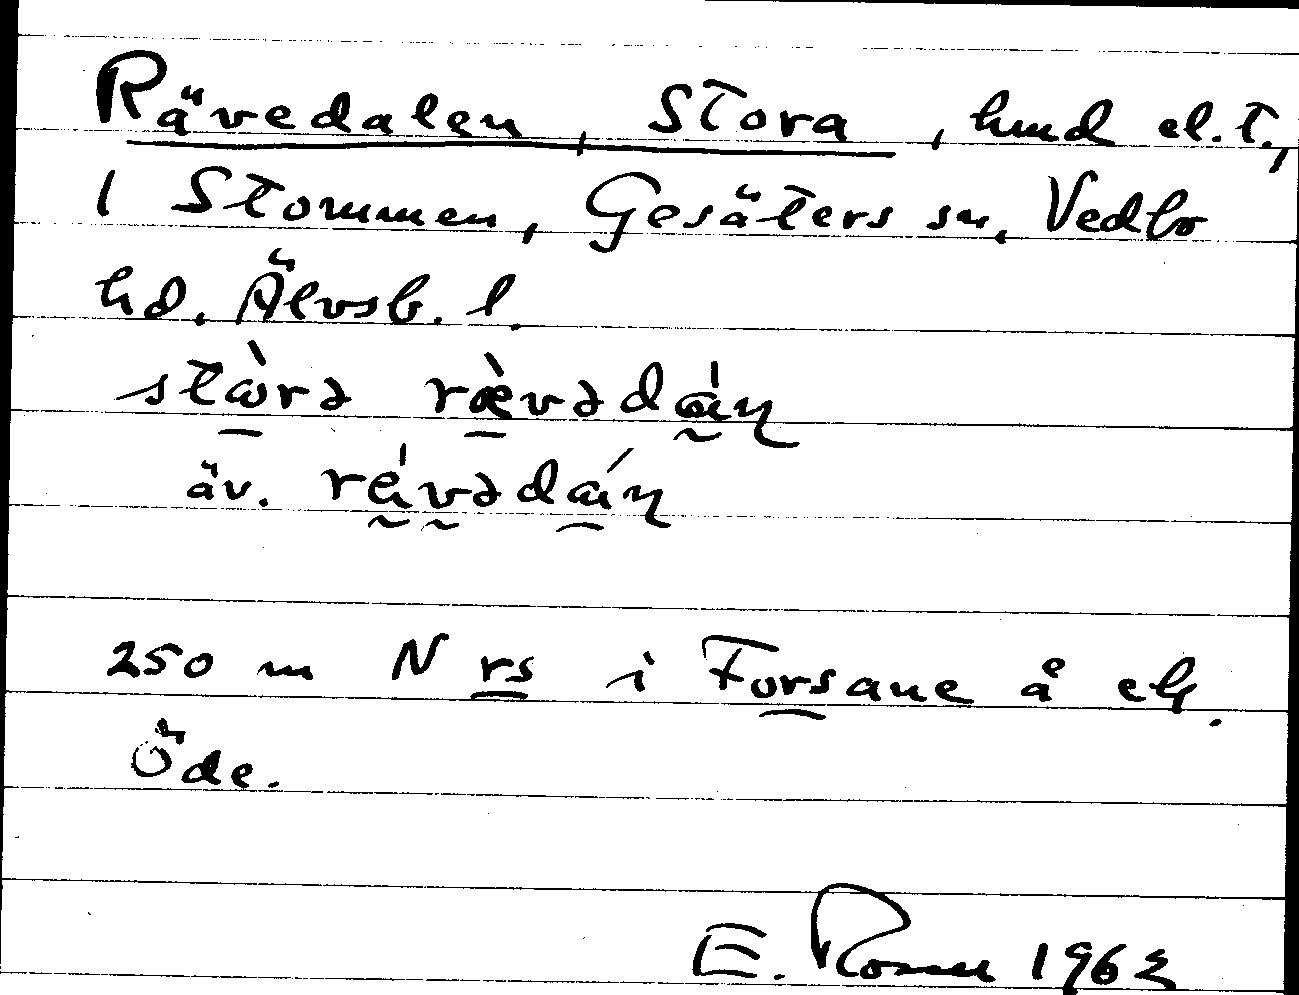 Rävedalen, Stora, hmd el.t.,
1 Stommen, Gesäters sn, Vedbo
hd. Älvsb. l.
stὼrə ræ̀vədáɳ
äv. rǽvədáɳ
250 m N rs i Forsane å ek.
Öde.
E. 1962